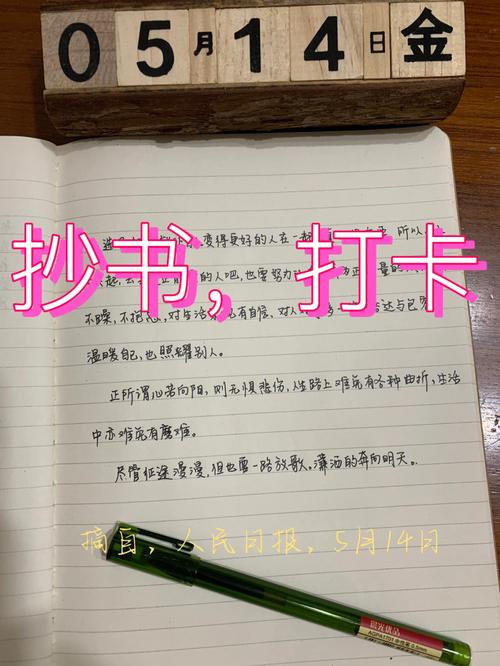 05月14日金
变得更好的人在一起 所以
抄书，打卡
的人吧，也要努力 量的
不躁，不抱怨，对生活 有自信，对人 达与包容
温暖自己，也照耀别人。
正所谓心若向阳，则无惧悲伤，人生路上难免有各种曲折，生活
中亦难免有磨难。
尽管征途漫漫，但也要一路放歌。潇洒的奔向明天。
摘自，人民日报，5月14日
晨光优品